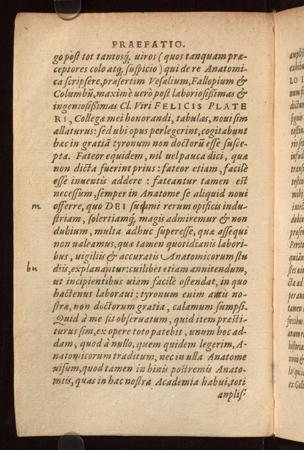 PRAEFATIO.
go post tot tantosq́; uiros (quos tanquam præ-
ceptores colo atq́; suspicio) qui de re Anatomi-
ca scripsere, præsertim Vesalium, Fallopium &
Columbũ, maximè uerò post laboriosissimas &
ingeniosissimas Cl. Viri FELICIS PLATE
RI, Collegæ mei honorandi, tabulas, noui sim
allaturus: sed ubi opus perlegerint, cogitabunt
hac in gratiã tyronum non doctorũ esse susce-
pta. Fateor equidem, nil uel pauca dici, quæ
non dicta fuerint prius: fateor etiam, facile
esse inuentis addere: fateantur tamen est
necessum, semper in Anatome se aliquid noui
m offerre, quo DEI summi rerum opificis indu-
striam, solertiamq́;, magis admiremur & non
dubium, multa adhuc superesse, quæ assequi
non ualeamus, quæ tamen quotidianis labori-
bus, uigiliis & accuratis Anatomicorum stu
diis, explanantur: cuilibet etiam annitendum,
ut incipientibus uiam facilè ostendat, in quo
hactenus laboraui: tyronum enim
nostræ, non doctorum gratia, calamum sumpsi.
Quid à me sit obseruatum, quid item præsti-
turus sim, ex opere toto patebit, unum hoc ad-
dam, quod à nullo, quem quidem legerim, A-
natomicorum traditum, nec in ulla Anatome
uisum, quod tamen in binis postremis Anato-
miis, quas in hac nostra Academia habui, toti
amplis-